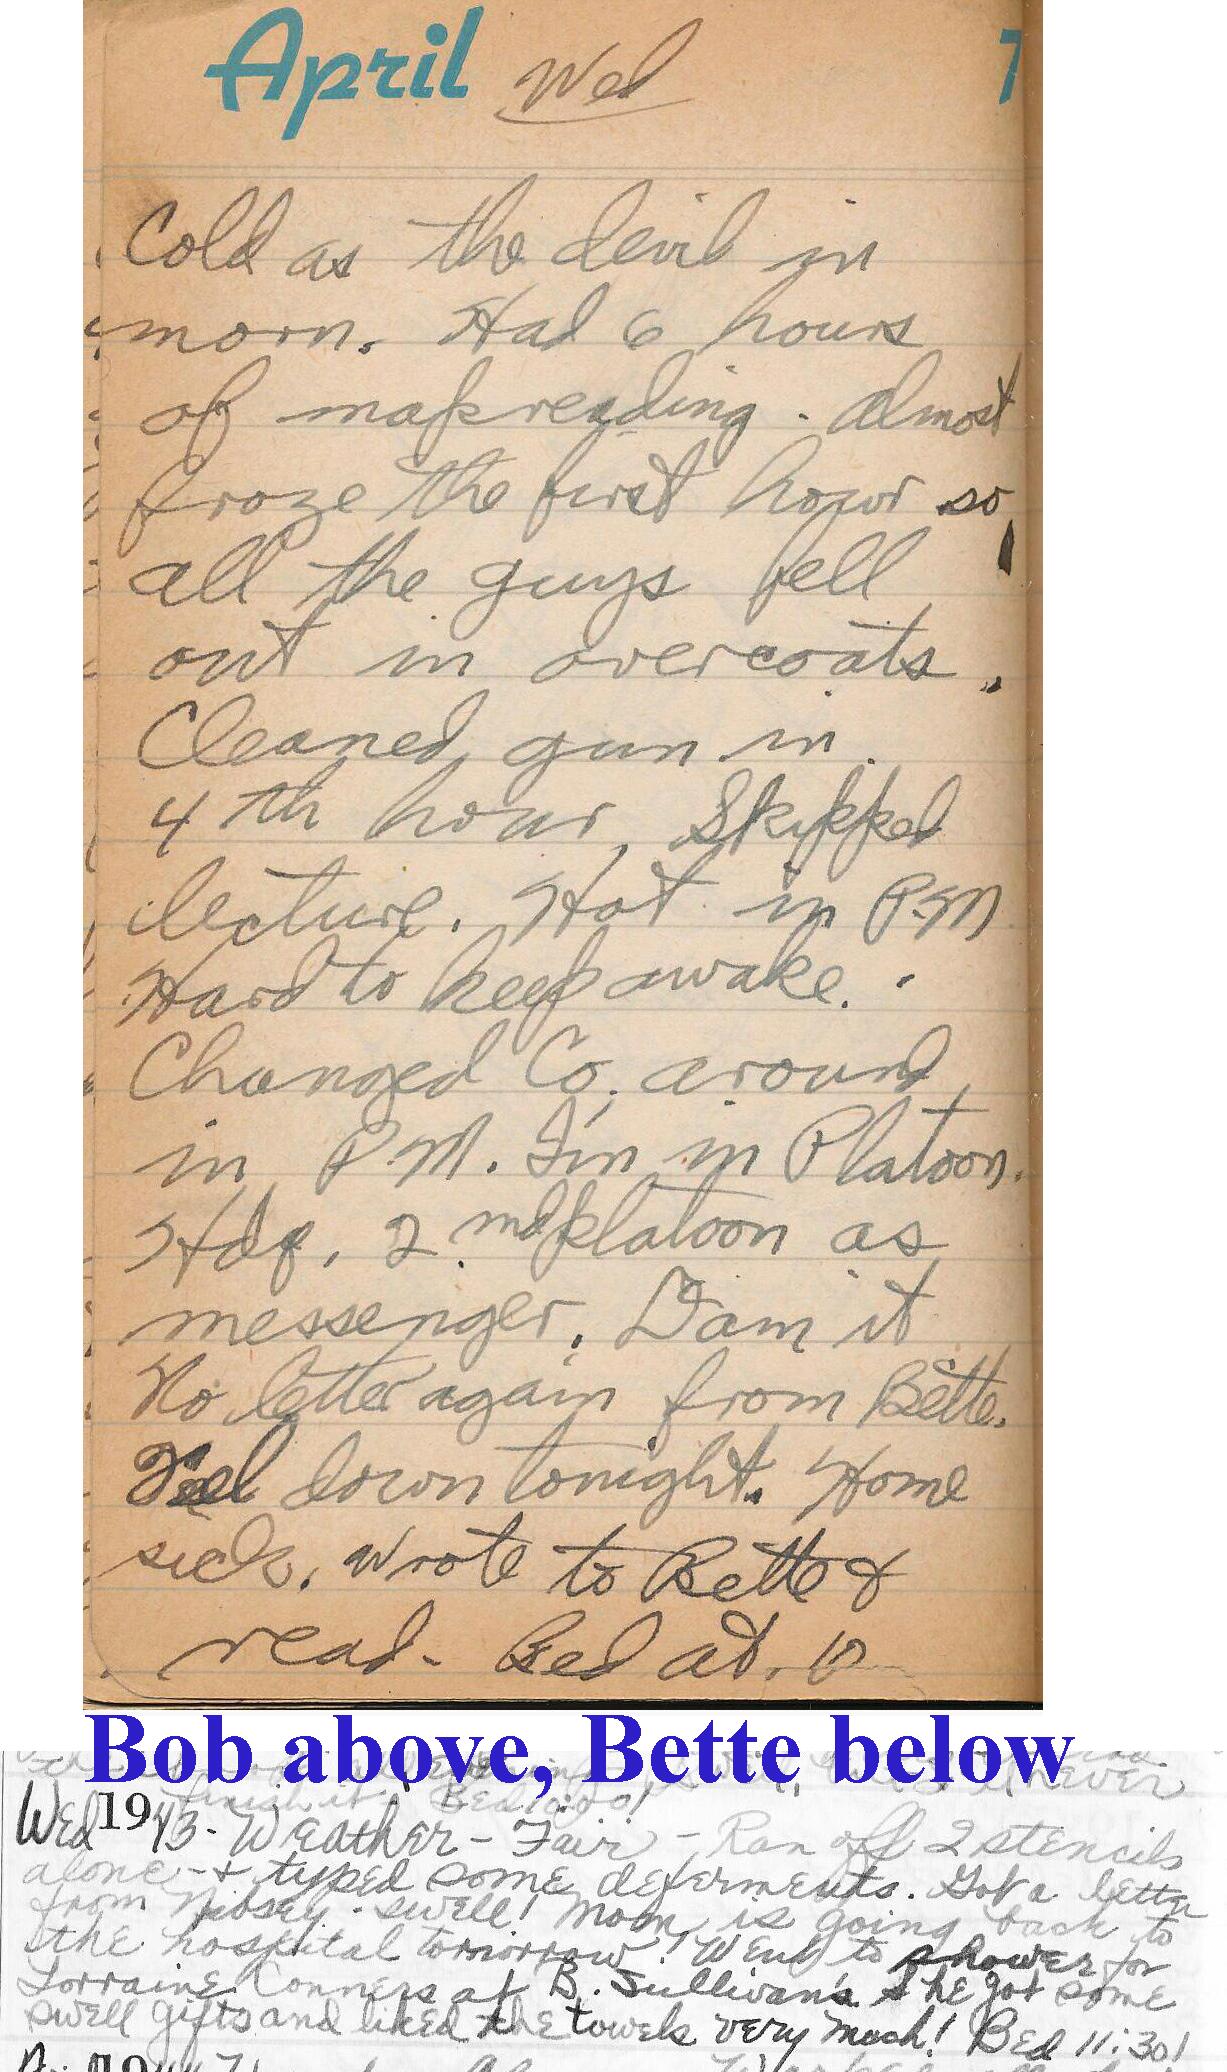 April Wed 7
Cold as the devil in
morn. Had 6 hours
of mapreading. Almost
froze the first hour so
all the guys fell
out in overcoats.
Cleaned gun in
4th hour, Skipped
lecture. Hot in P.M
Hard to keep awake.
Changed Co. around
in P.M. I'm in Platoon.
Hdq. 2nd platoon as
messenger. Dam it
No letter again from Bette.
Feel down tonight. Home
sick. Wrote to Bette &
read - Bed at 10
Bob above, Bette below
never
finish it! Bed
Wed 1943 - Weather - Fair - Ran off 2 stencils
alone - & typed some deferments. Got a letter
from swell! Mom is going back to
the hospital tomorrow! Went to shower for
Lorraine Conners at B. Sullivan's she got some
swell gifts and liked the towels very much! Bed 11:30!